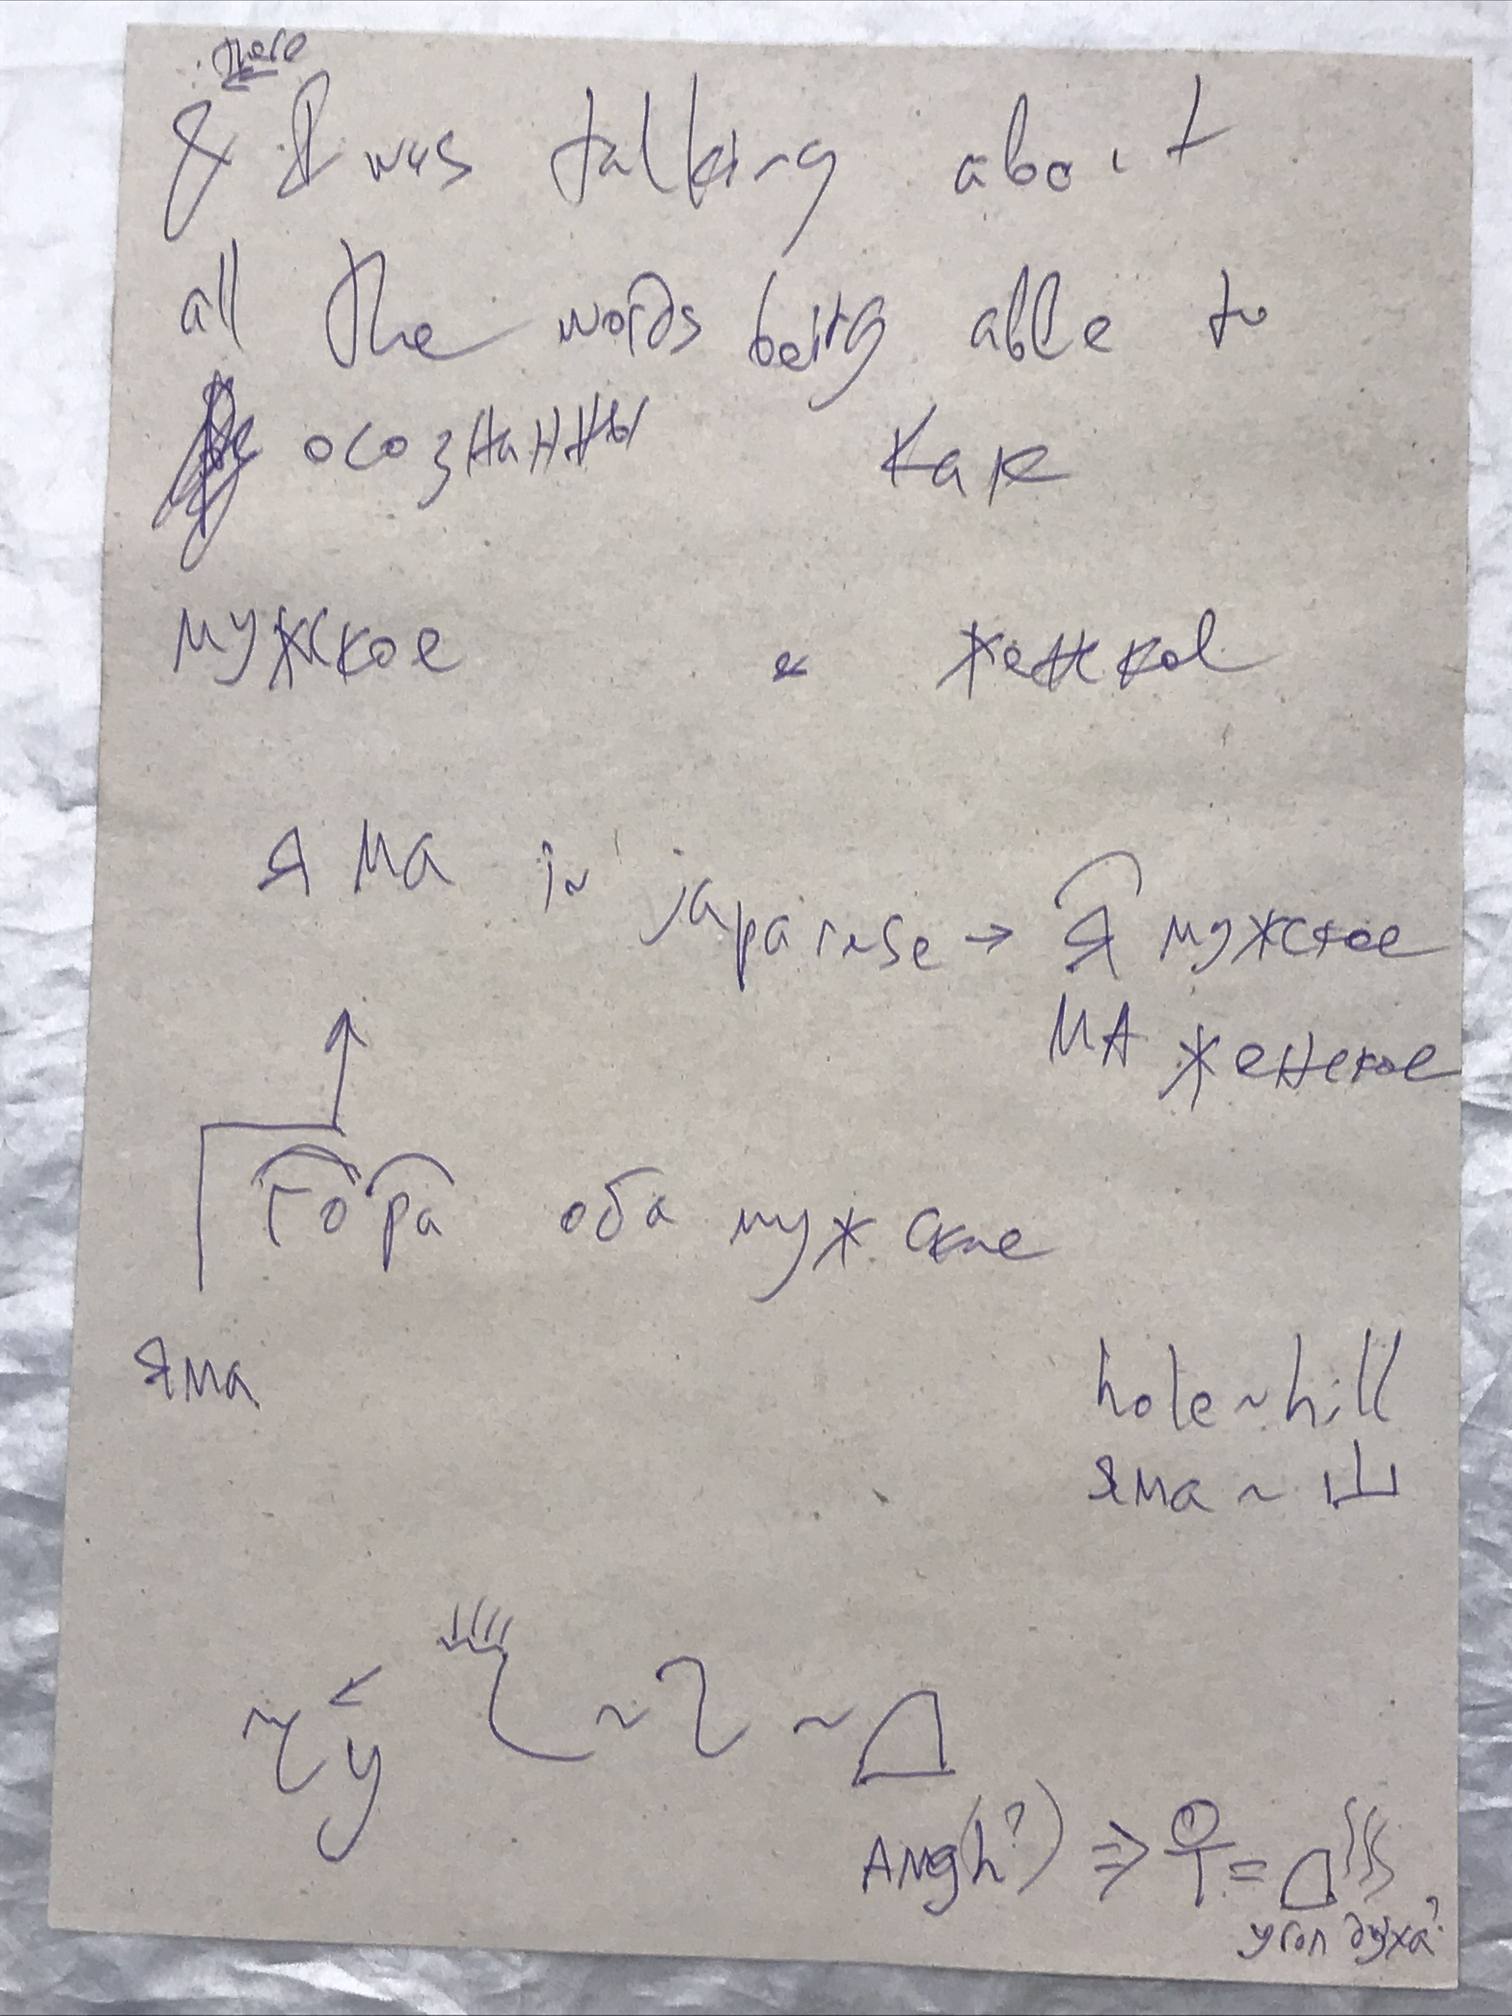 there
& I was talking about
all the words being able to
осознанны как
мужское и женкое
я ма in japanese → Я мужское
МА женское
гора оба мужские
яма
hole ~ hill
яма ~ 山
~ ~
Ang(h?) ⇒ = 
угол духа?